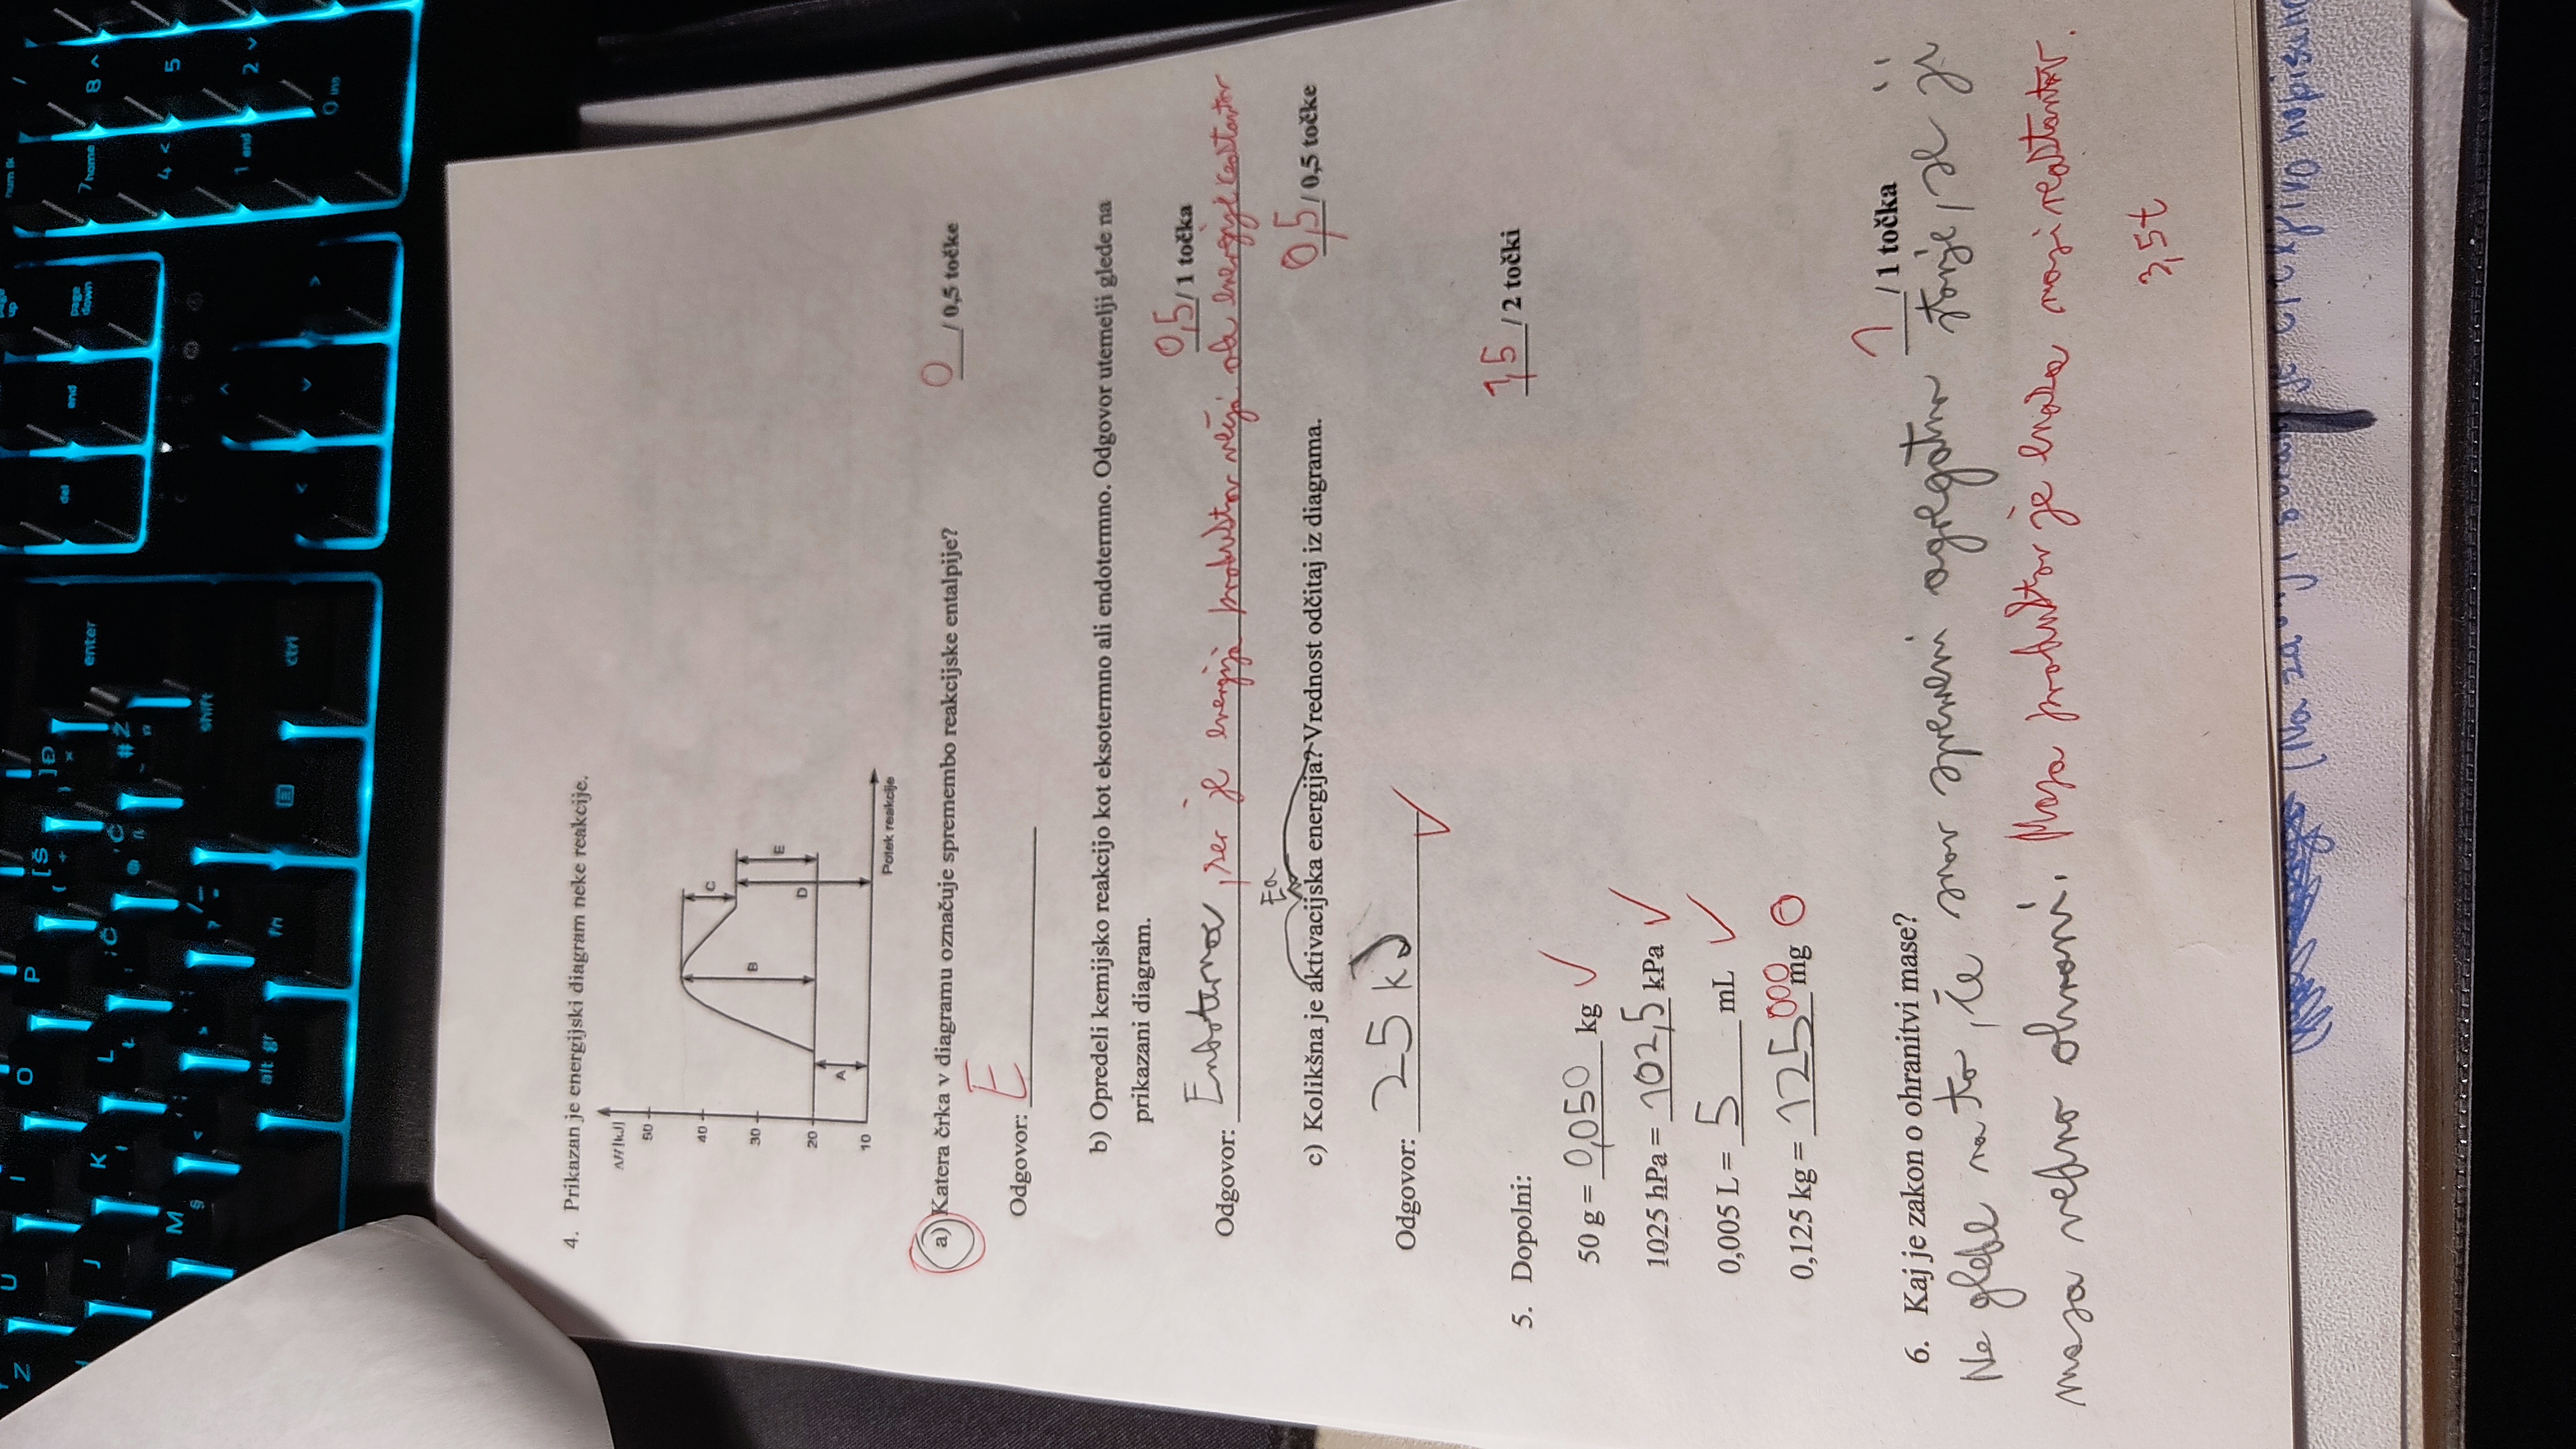 Z U I O P [ Š ] Đ enter
J K L ; Č ' Ć # Ž
M § shift
alt gr fn ctrl
del end page down
up
num lk
7 home 8
4 5
1 end 2
0 ins
4. Prikazan je energijski diagram neke reakcije.
ΔH [kJ]
50
40
C
30
B
E
D
20
A
10
Potek reakcije
a) Katera črka v diagramu označuje spremembo reakcijske entalpije? 0 / 0,5 točke
Odgovor: E
b) Opredeli kemijsko reakcijo kot eksotermno ali endotermno. Odgovor utemelji glede na
prikazani diagram.
0,5 / 1 točka
Odgovor: Endotermna, ker je energija produktov večja od energije reaktantov
Ea
c) Kolikšna je aktivacijska energija? Vrednost odčitaj iz diagrama. 0,5 / 0,5 točke
Odgovor: 25 kJ
5. Dopolni: 1,5 / 2 točki
50 g = 0,050 kg
1025 hPa = 102,5 kPa
0,005 L = 5 mL
0,125 kg = 125000 mg
6. Kaj je zakon o ohranitvi mase? 1 / 1 točka
Ne glede na to, če snov spremeni agregatno stanje, se ji
masa vedno ohrani. Masa produktov je enaka masi reaktantov.
3,5t
(Na